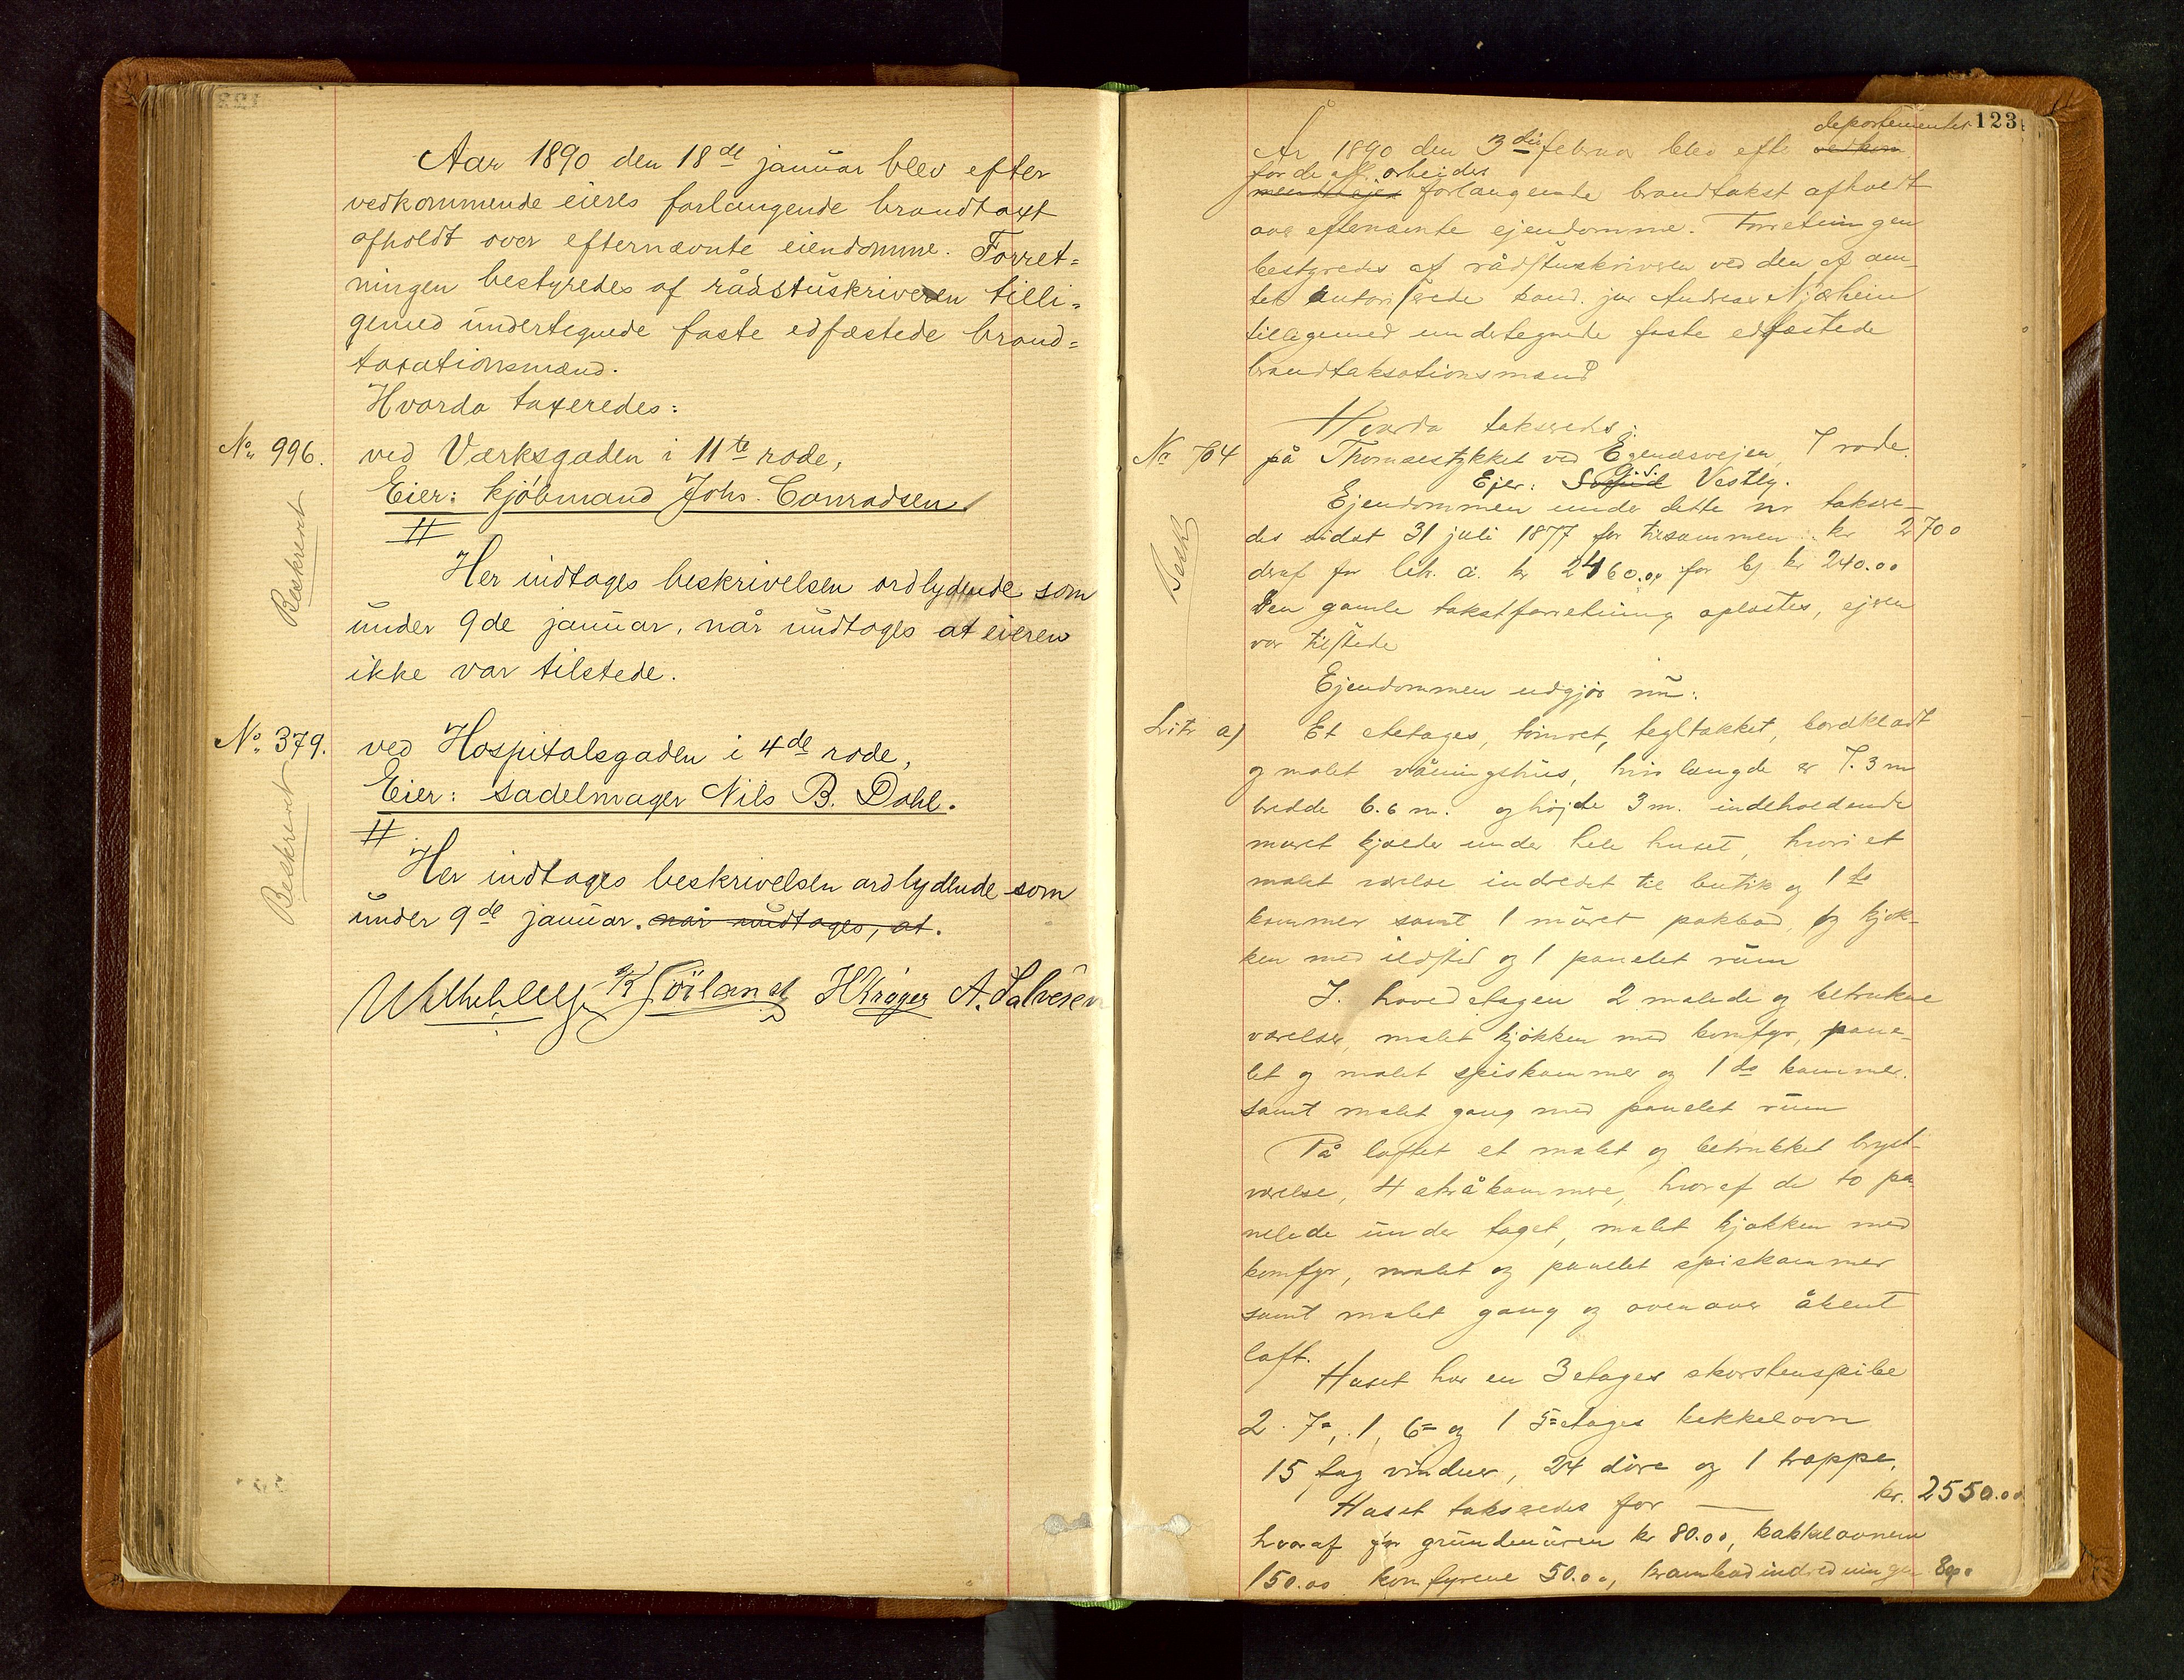 Aar 1890 den 18de januar blev efter
vedkommende eieres forlangende brandtaxt
afholdt over efternævnte eiendomme. Forret=
ningen bestyredes af rådstuskriveren tilli=
gemed undertegnede faste edfæstede brand=
taxationsmænd.
Hvorda taxeredes:
No. 996. ved Værksgaden i 11te rode,
Eier: kjøbmand Johs. Conradsen
Beskrevet
Her indtages beskrivelsen ordlydende som
under 9de januar, når undtages at eieren
ikke var tilstede.
No. 379. ved Hospitalsgaden i 4de rode,
Eier: sadelmager Nils B. Dahl.
Beskrevet
Her indtages beskrivelsen ordlydende som
under 9de januar. når undtages, at.
H Krøger A. Salvesen
123
departementet
År 1890 den 3die februar blev efter vedkom
for de off. arbeides
mende ejers forlangende brandtakst afholdt
over efternævnte ejendomme. Forretningen
bestyredes af rådstuskriveren ved den af am-
tet autoriserede kand. jur Andreas Njærheim
tilligemed undertegnede faste edfæstede
brandtaksationsmænd
Hvorda takseredes:
No 704 på Thomasstykket ved Egenæsvejen, 7 rode.
G. S.
Ejer: Vestly.
Besk
Ejendommen under dette nr taksere-
des sidst 31 juli 1877 for tilsammen kr 2700
deraf for litr. a. kr 2460.00 for b) kr 240.00
Den gamle takstforretning oplæstes, ejeren
var tilstede
Ejendommen udgjør nu:
Litr a) Et etetages, tømret, tegltækket, bordklædt
og malet våningshus, hvis længde er 7.3 m
bredde 6.6 m. og højde 3 m. indeholdende
muret kjælder under hele huset, hvori et
malet værelse indredet til butik og 1 do
kammer samt 1 muret pakbod, og kjøk-
ken med ildsted og 1 panelet rum
I hovedetagen 2 malede og betrukne
værelser, malet kjøkken med komfyr, pane-
let og malet spiskammer og 1 do kammer.
samt malet gang med panelet rum
På loftet et malet og betrukket kvist-
værelse, 4 skråkammere, hvoraf de to pa
nelede under taget, malet kjøkken med
komfyr, malet og panelet spiskammer
samt malet gang og ovenover åbent
loft.
Huset har en 3 etages skorstenspibe
2. 7=, 1, 6= og 1 5=etages kakkelovn
15 fag vinduer, 24 døre og 1 trappe,
Huset takseredes for — kr. 2550.00
hvoraf for grundmuren kr 80.00, kakkelovnene
150.00 komfyrene 50.00, krambodindredningen